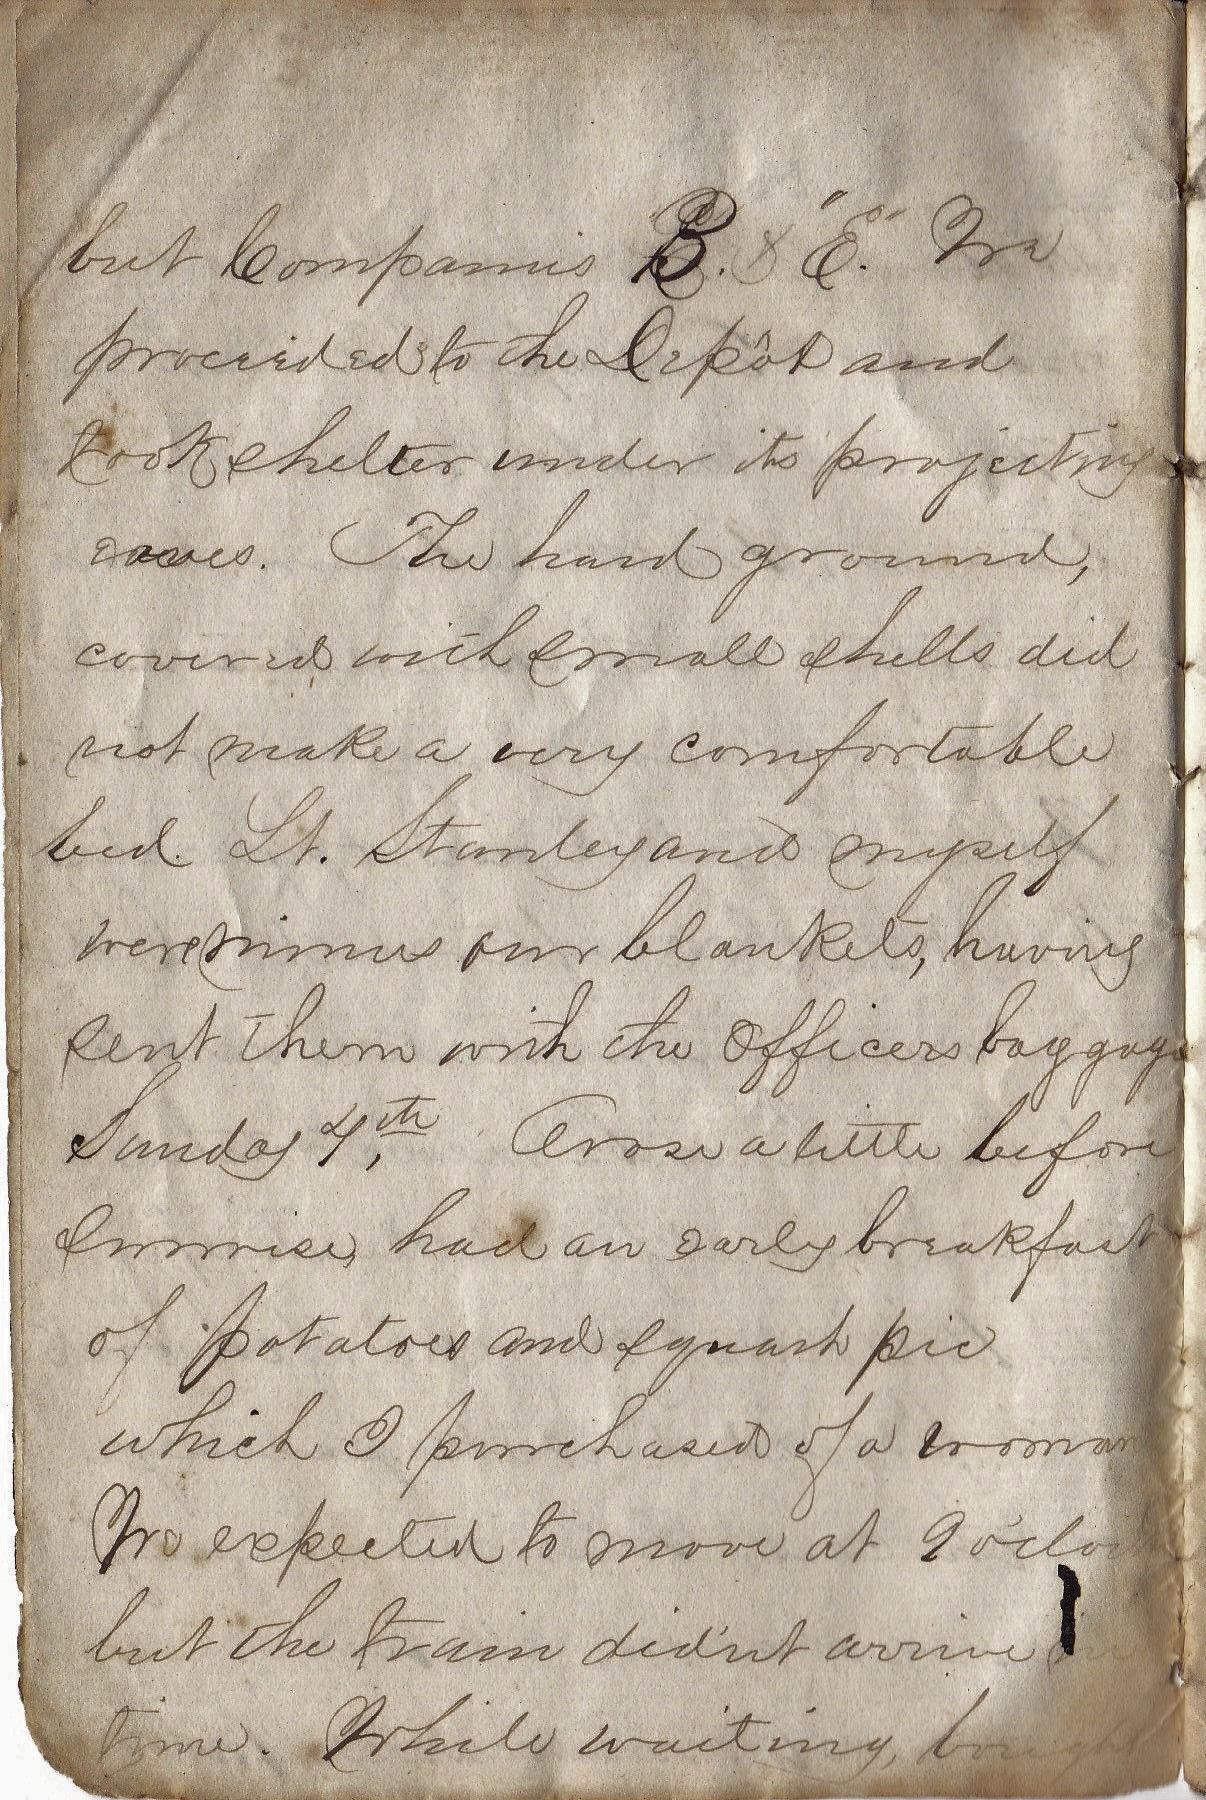 but Companies B. & "E." We
proceeded to the Depôt and
took shelter under its projecting
eaves. The hard ground,
covered with small shells did
not make a very comfortable
bed. Lt. Stanley and myself
were minus our blankets, having
sent them with the Officers baggage
Sunday 4,th Arose a little before
sunrise, had an early breakfast
of potatoes and squash pie
which I purchased of a woman
We expected to move at 9 o'clock
but the train did'nt arrive in
time. While waiting, bought